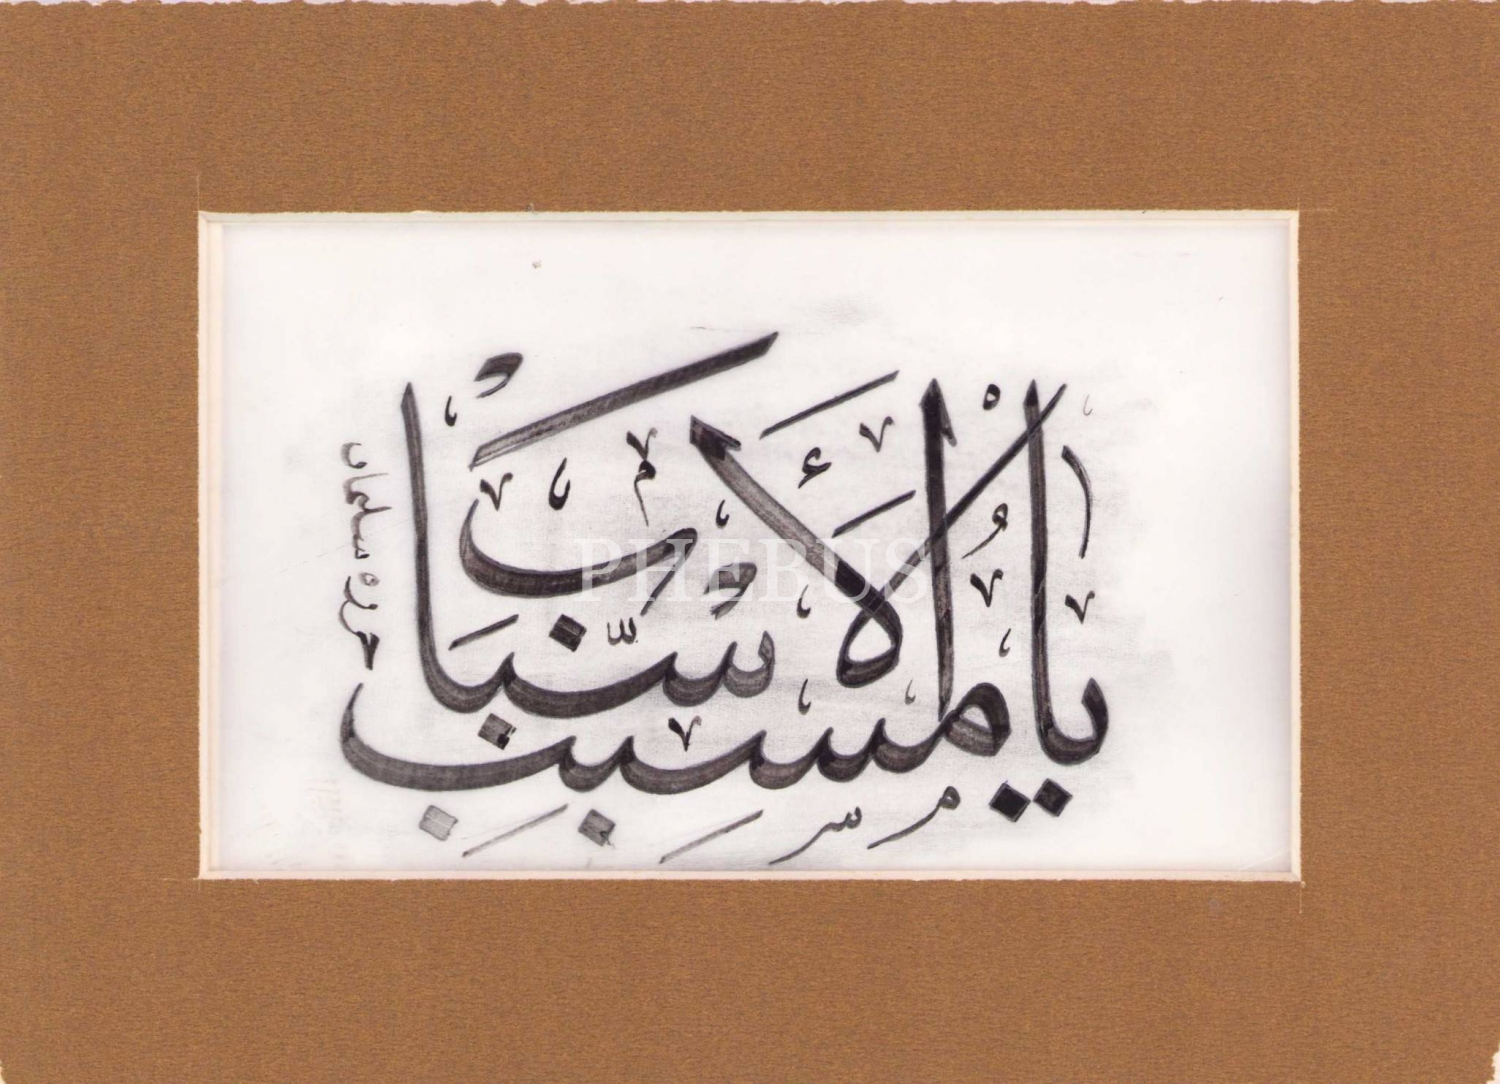 يَا مُسَبِّبَ الْأَسْبَابِ
حرره سليمان
PHEBUS